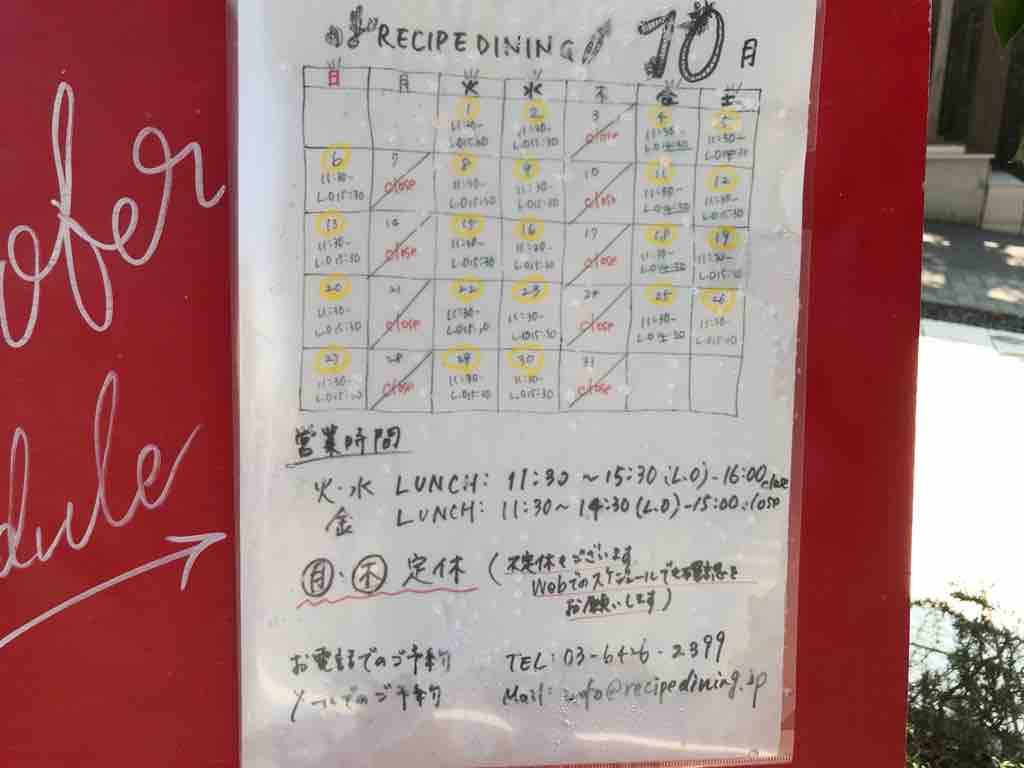 ofer
dule
RECIPE DINING 10月
日 月 火 水 木 金 土
1 2 3 4 5
11:30- 11:30- close 11:30- 11:30-
L.O15:30 L.O15:30 L.O14:30 L.O14:30
6 7 8 9 10 11 12
11:30- close 11:30- 11:30- close 11:30- 11:30-
L.O15:30 L.O15:30 L.O15:30 L.O14:30 L.O15:30
13 14 15 16 17 18 19
11:30- close 11:30- 11:30- close 11:30- 11:30-
L.O15:30 L.O15:30 L.O15:30 L.O14:30 L.O15:30
20 21 22 23 24 25 26
11:30- close 11:30- 11:30- close 11:30- 11:30-
L.O15:30 L.O15:30 L.O15:30 L.O14:30 L.O15:30
27 28 29 30 31
11:30- close 11:30- 11:30- close
L.O15:30 L.O15:30 L.O15:30
営業時間
火・水 LUNCH: 11:30 ~15:30(L.O)-16:00close
金 LUNCH: 11:30~14:30(L.O)-15:00close
月・木 定休 (不定休もございます
Webでのスケジュールでご確認を
お願いします)
お電話でのご予約 TEL:03-6426-2399
メールでのご予約 Mail: info@recipedining.jp